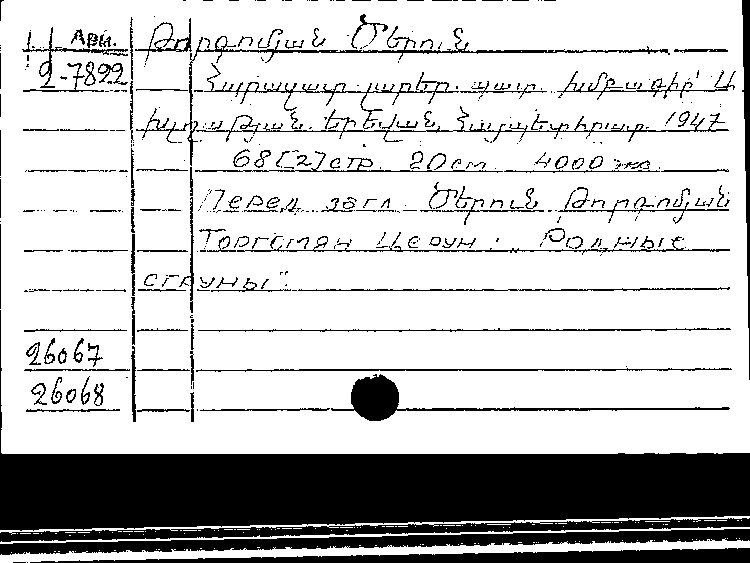 Арм. Թորգոմյան Ծերուն
2-7822 Հարազատ լարեր. պատ. խմբագիր՝ Ա.
Երևան, Հայպետհրատ, 1947
68[2] стр. 20 см. 4000 экз.
Перед загл. Ծերուն Թորգոմյան
Торгомян Церун: „Родные
струны".
26067
26068